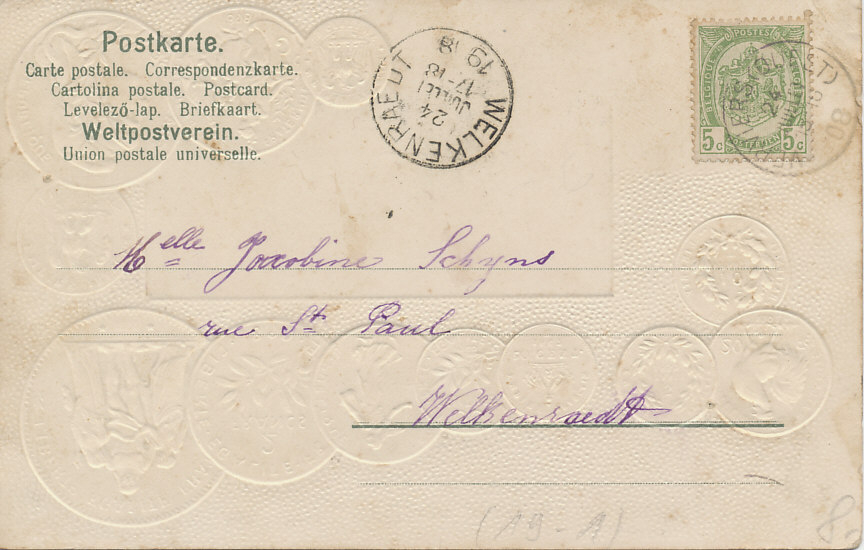 Postkarte.
Carte postale. Correspondenzkarte.
Cartolina postale. Postcard.
Levelező-lap. Briefkaart.
Weltpostverein.
Union postale universelle.
WELKENRAEDT
24
JUILLET
17-18
19 8
POSTES
5c 5c
POSTERIJEN
24
08
Melle Jacobine Schyns
rue St Paul
Welkenraedt
(19-1)